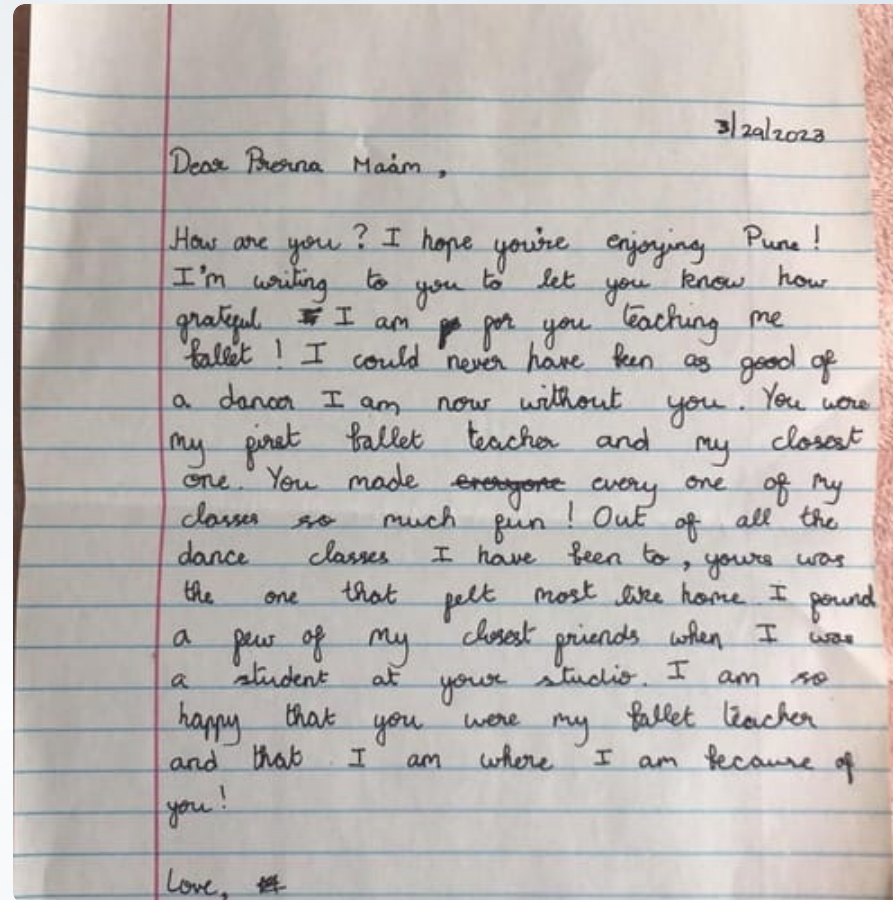 3/29/2023
Dear Prerna Ma'am,
How are you? I hope you're enjoying Pune!
I'm writing to you to let you know how
grateful I am for you teaching me
ballet! I could never have been as good of
a dancer I am now without you. You were
my first ballet teacher and my closest
one. You made everyone every one of my
classes so much fun! Out of all the
dance classes I have been to, yours was
the one that felt most like home. I found
a few of my closest friends when I was
a student at your studio. I am so
happy that you were my ballet teacher
and that I am where I am because of
you!
Love,